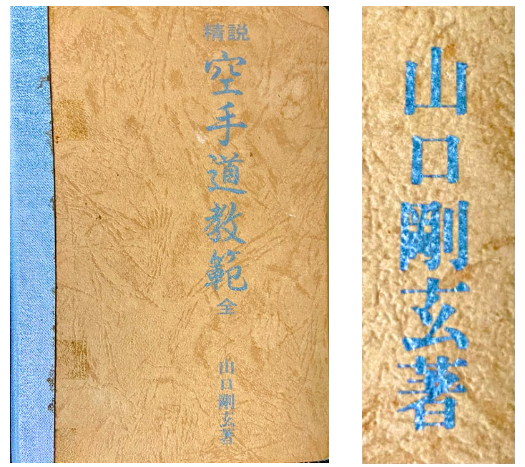 精説
空手道教範
全
山口剛玄著
山口剛玄著